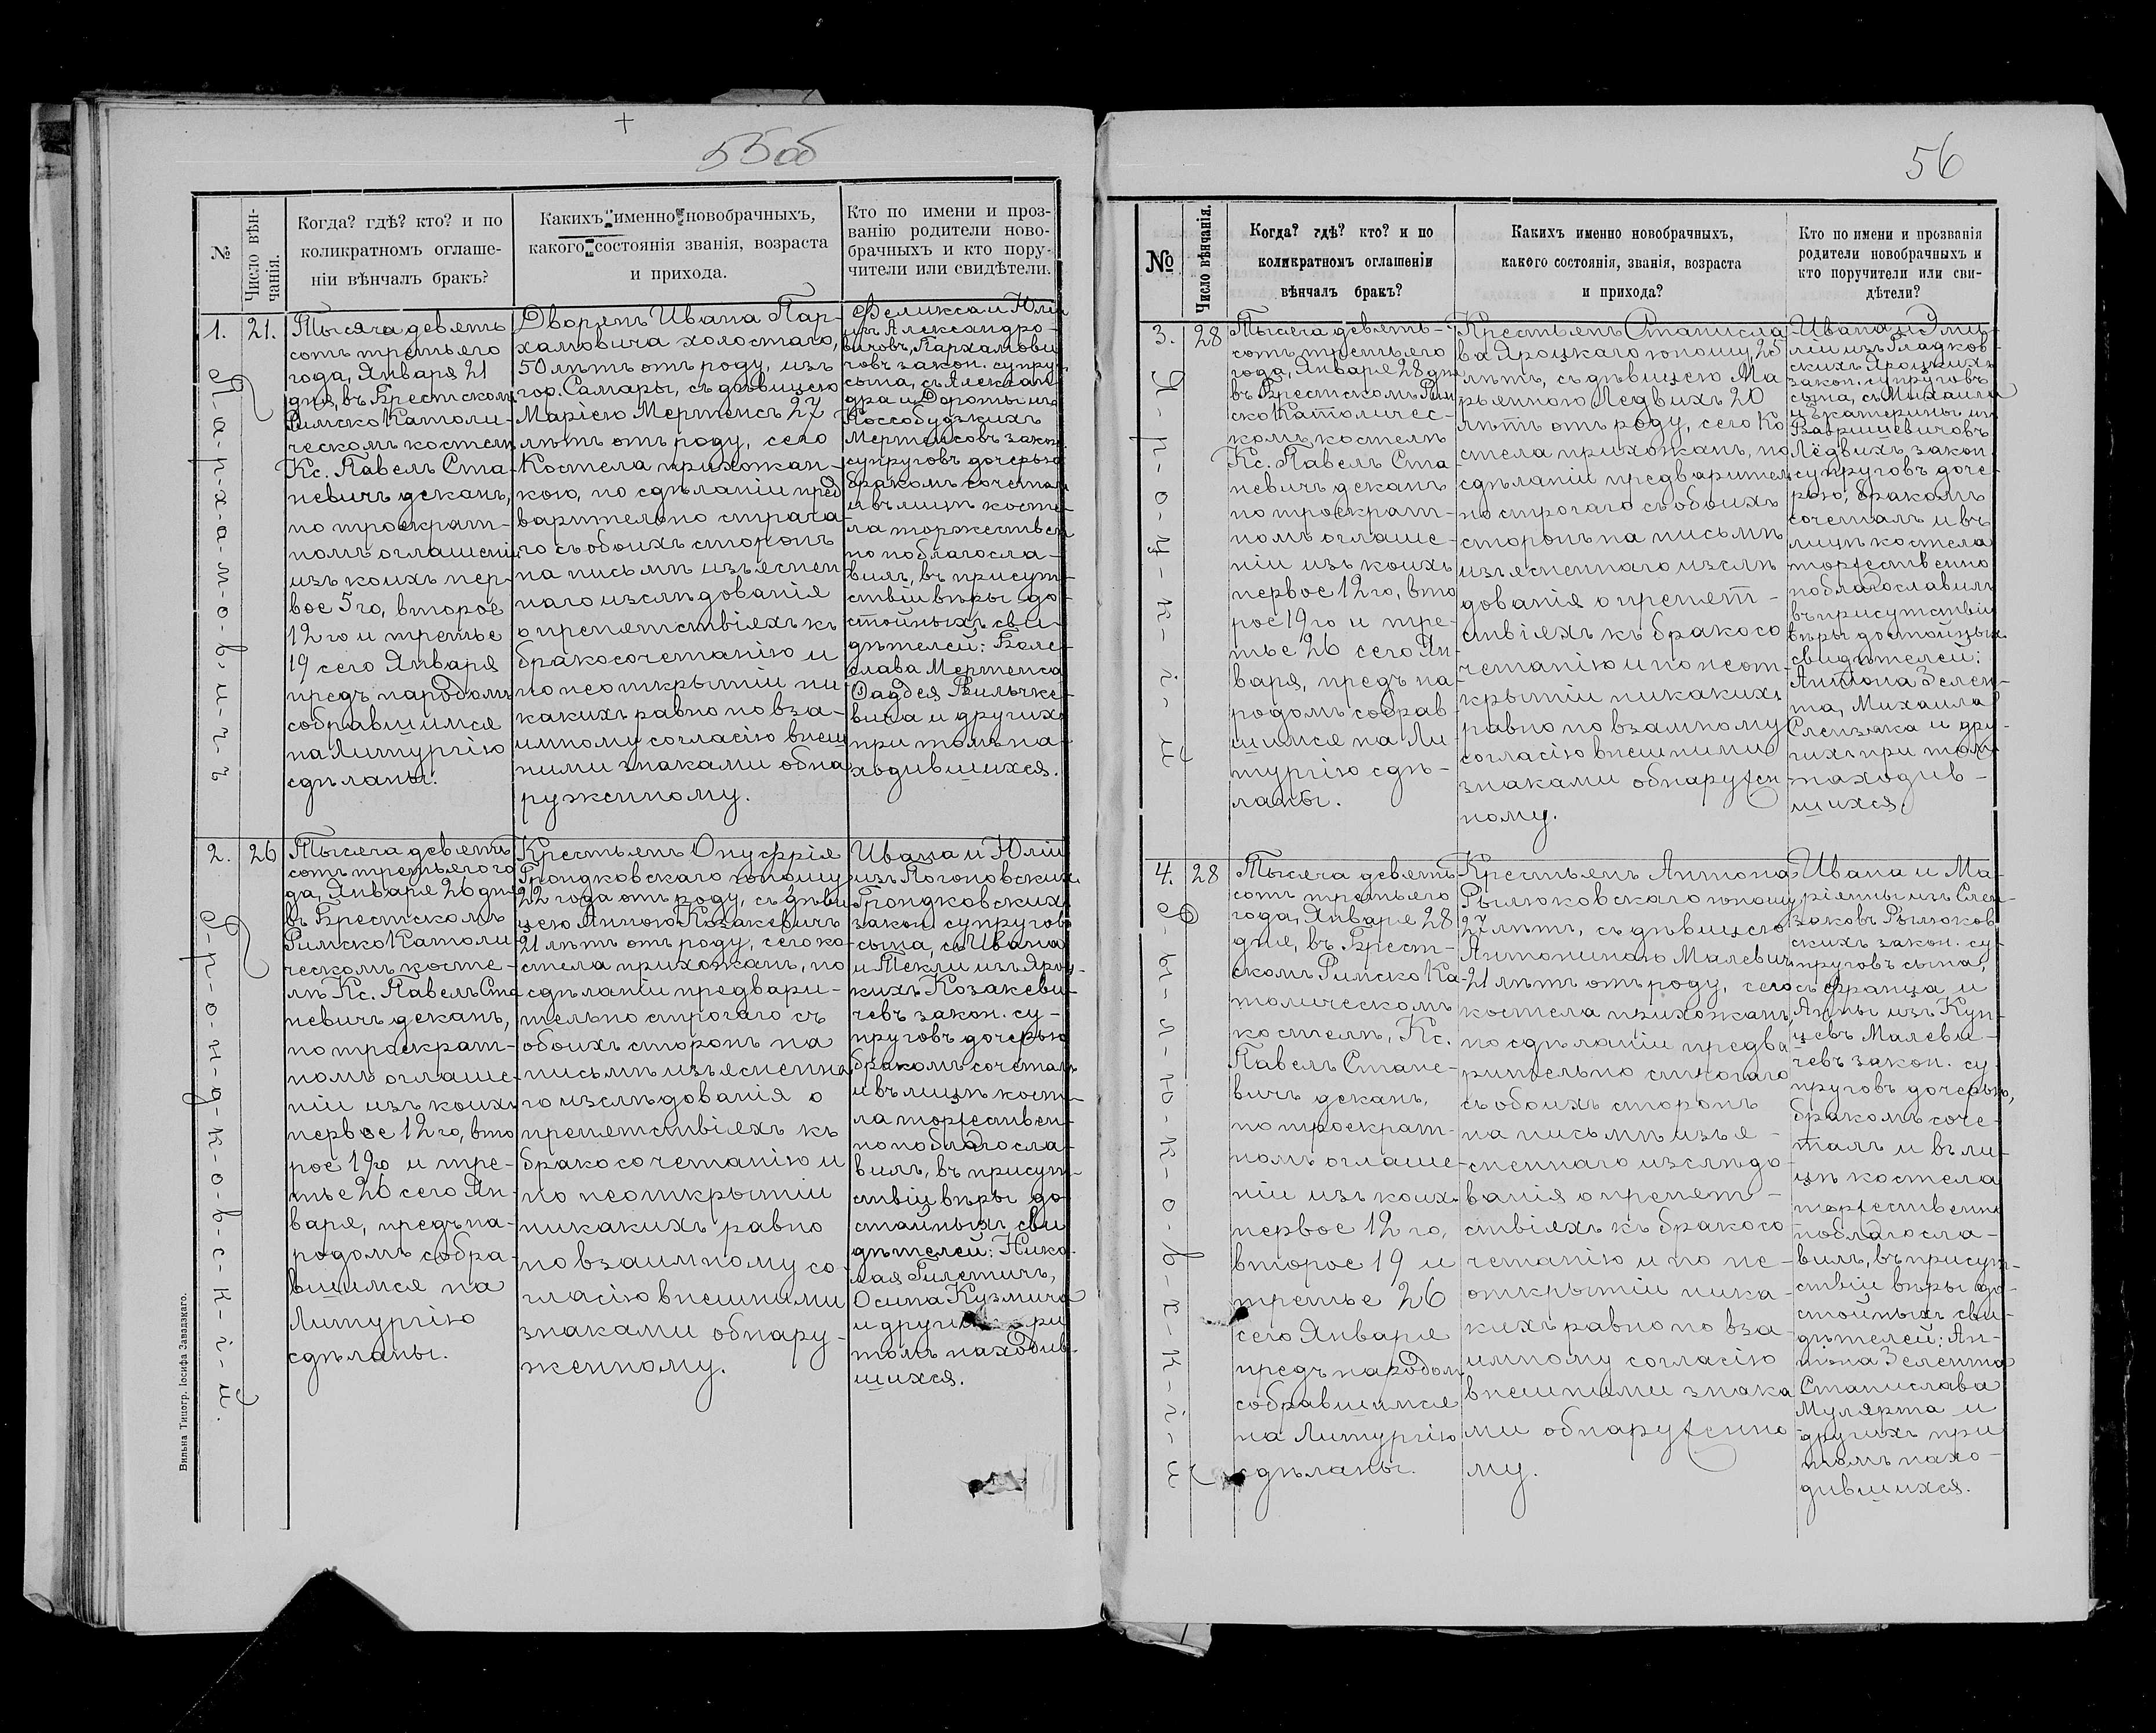 55об
№
Число вѣн-
чанія.
Когда? гдѣ? кто? и по
коликратномъ оглаше-
ніи вѣнчалъ бракъ?
Какихъ именно новобрачныхъ,
какого состоянія званія, возраста
и прихода.
Кто по имени и проз-
ванію родители ново-
брачныхъ и кто пору-
чители или свидѣтели.
1.
21.
П-а-р-х-а-м-о-в-и-ч-ъ
Тысяча девять
сотъ третьяго
года, Января 21
дня, въ Брестскомъ
Римско Католи-
ческомъ костелѣ
Кс. Павелъ Ста-
невичъ деканъ,
по троекрат-
номъ оглашеніи
изъ коихъ пер-
вое 5го, второе
12го и третье
19 сего Января
предъ народомъ
собравшимся
на Литургію
сдѣланы.
Дворянъ Ивана Пар-
хамовича холостаго,
50 лѣтъ отъ роду, изъ
гор. Самары, съ дѣвицею
Маріею Мертенсъ 27
лѣтъ отъ роду, сего
Костела прихожан-
кою, по сдѣланіи пред
варительно строга-
го съ обоихъ сторонъ
на письмѣ изъяснен
наго изслѣдованія
о препятствіяхъ къ
бракосочетанію и
по неоткрытіи ни
какихъ равно по вза-
имному согласію внеш
ними знаками обна
руженному.
Феликса и Юліи
изъ Александро-
вичовъ, Пархамови
човъ закон. супру
сына, съ Алексан-
дра и Дороты изъ
Коссобудзкихъ
Мертенсовъ закон
супруговъ дочерью
бракомъ сочеталъ
и въ лицѣ косте-
ла торжествен
но поблагосла-
вилъ, въ присут-
ствіи вѣры до-
стойныхъ сви-
дѣтелей: Боле-
слава Мертенса
Фаддея Вильчке-
вича и другихъ
при томъ на-
ходившихся.
2.
26
Г-р-о-н-д-к-о-в-с-к-і-й.
Тысяча девять
сотъ третьяго го
да, Января 26 дня
въ Брестскомъ
Римско Католи
ческомъ косте-
лѣ Кс. Павелъ Ста
невичъ деканъ,
по троекрат-
номъ оглаше-
ніи изъ коихъ
первое 12го, вто
рое 19го и тре-
тье 26 сего Ян-
варя, предъ на-
родомъ собра-
вшимся на
Литургію
сдѣланы.
Крестьянъ Онуфрія
Грондковскаго юношу
22 года отъ роду, съ дѣви
цею Анною Козакевичъ
21 лѣтъ отъ роду, сего ко-
стела прихожанъ, по
сдѣланіи предвари-
тельно строгаго съ
обоихъ сторонъ на
письмѣ изъясненна
го изслѣдованія о
препятствіяхъ къ
бракосочетанію и
по неоткрытіи
никакихъ равно
по взаимному со-
гласію внешними
знаками обнару-
женному.
Ивана и Юліи
изъ Погоновскихъ
Грондковскихъ
закон. супруговъ
сына, съ Ивана
и Текли изъ Яроц-
кихъ Козакеви-
чевъ закон. су-
пруговъ дочерью
бракомъ сочеталъ
и въ лицѣ косте-
ла торжествен-
но поблагосла-
вилъ, въ присут-
ствіи вѣры до-
стойныхъ сви
дѣтелей: Нико-
лая Гилетичъ,
Осипа Кузмича
и други ри
томъ находив-
шихся.
Вильна Типогр. Іосифа Завадзкаго.
56
№
Число вѣнчанія.
Когда? гдѣ? кто? и по
коликратномъ оглашеніи
вѣнчалъ бракъ?
Какихъ именно новобрачныхъ,
какого состоянія, званія, возраста
и прихода?
Кто по имени и прозванія
родители новобрачныхъ и
кто поручители или сви-
дѣтели?
3.
28
Я-р-о-ц-к-і-й
Тысяча девять-
сотъ третьяго
года, Января 28 дня
въ Брестскомъ Рим
ско Католичес-
комъ костелѣ
Кс. Павелъ Ста
невичъ деканъ
по троекрат-
номъ оглаше-
ніи изъ коихъ
первое 12го, вто
рое 19го и тре-
тье 26 сего Ян-
варя, предъ на
родомъ собрав
шимся на Ли
тургію сдѣ-
ланы.
Крестьянъ Станисла
ва Яроцкаго юношу, 25
лѣтъ, съ дѣвицею Ма
рьянною Ледвихъ 20
лѣтъ отъ роду, сего Ко
стела прихожанъ, по
сдѣланіи предварител
но строгаго съ обоихъ
сторонъ на письмѣ
изъясненнаго изслѣ
дованія о препят-
ствіяхъ къ бракосо
четанію и по неот-
крытіи никакихъ
равно по взаимному
согласію внешними
знаками обнаружен
ному.
Ивана и Эми-
ліи изъ Гладков-
скихъ Яроцкихъ
закон. супруговъ
сына, съ Михаила
и Екатерины изъ
Вавришевичовъ
Лёдвихъ, закон.
супруговъ доче-
рью, бракомъ
сочеталъ и въ
лицѣ костела
торжественно
поблагословилъ
въ присутствіи
вѣры достойныхъ
свидѣтелей:
Антона Зелен-
та, Михаила
Слензака и дру-
гихъ при томъ
находив-
шихся.
4.
28
Р-ы-л-ю-к-о-в-с-к-і-й
Тысяча девять
сотъ третьяго
года, Января 28
дня, въ Брест-
скомъ Римско Ка-
толическомъ
костелѣ, Кс.
Павелъ Стане-
вичъ деканъ,
по троекрат-
номъ оглаше-
ніи изъ коихъ
первое 12го,
второе 19 и
третье 26
сего Января
предъ народом
собравшимся
на Литургію
сдѣланы.
Крестьянъ Антона
Рылюковскаго юношу
27 лѣтъ, съ дѣвицею
Антониною Малевичъ
21 лѣтъ отъ роду, сего
костела прихожанъ,
по сдѣланіи предва
рительно строгаго
съ обоихъ сторонъ
на письмѣ изъя-
сненнаго изслѣдо-
ванія о препят-
ствіяхъ къ бракосо
четанію и по не-
открытіи ника-
кихъ равно по вза-
имному согласію
внешними знака
ми обнаруженно
му.
Ивана и Ма-
ріянны изъ Слен-
заковъ Рылюков
скихъ закон. су-
пруговъ сына,
съ Франца и
Анны изъ Кун-
цевъ Малеви-
чевъ закон. су-
пруговъ дочерью,
бракомъ соче-
талъ и въ ли-
цѣ костела
торжественно
поблагосла-
вилъ, въ присут-
ствіи вѣры до-
стойныхъ сви-
дѣтелей: Ан-
тона Зелента
Станислава
Мулярта и
другихъ при
томъ нахо-
дившихся.